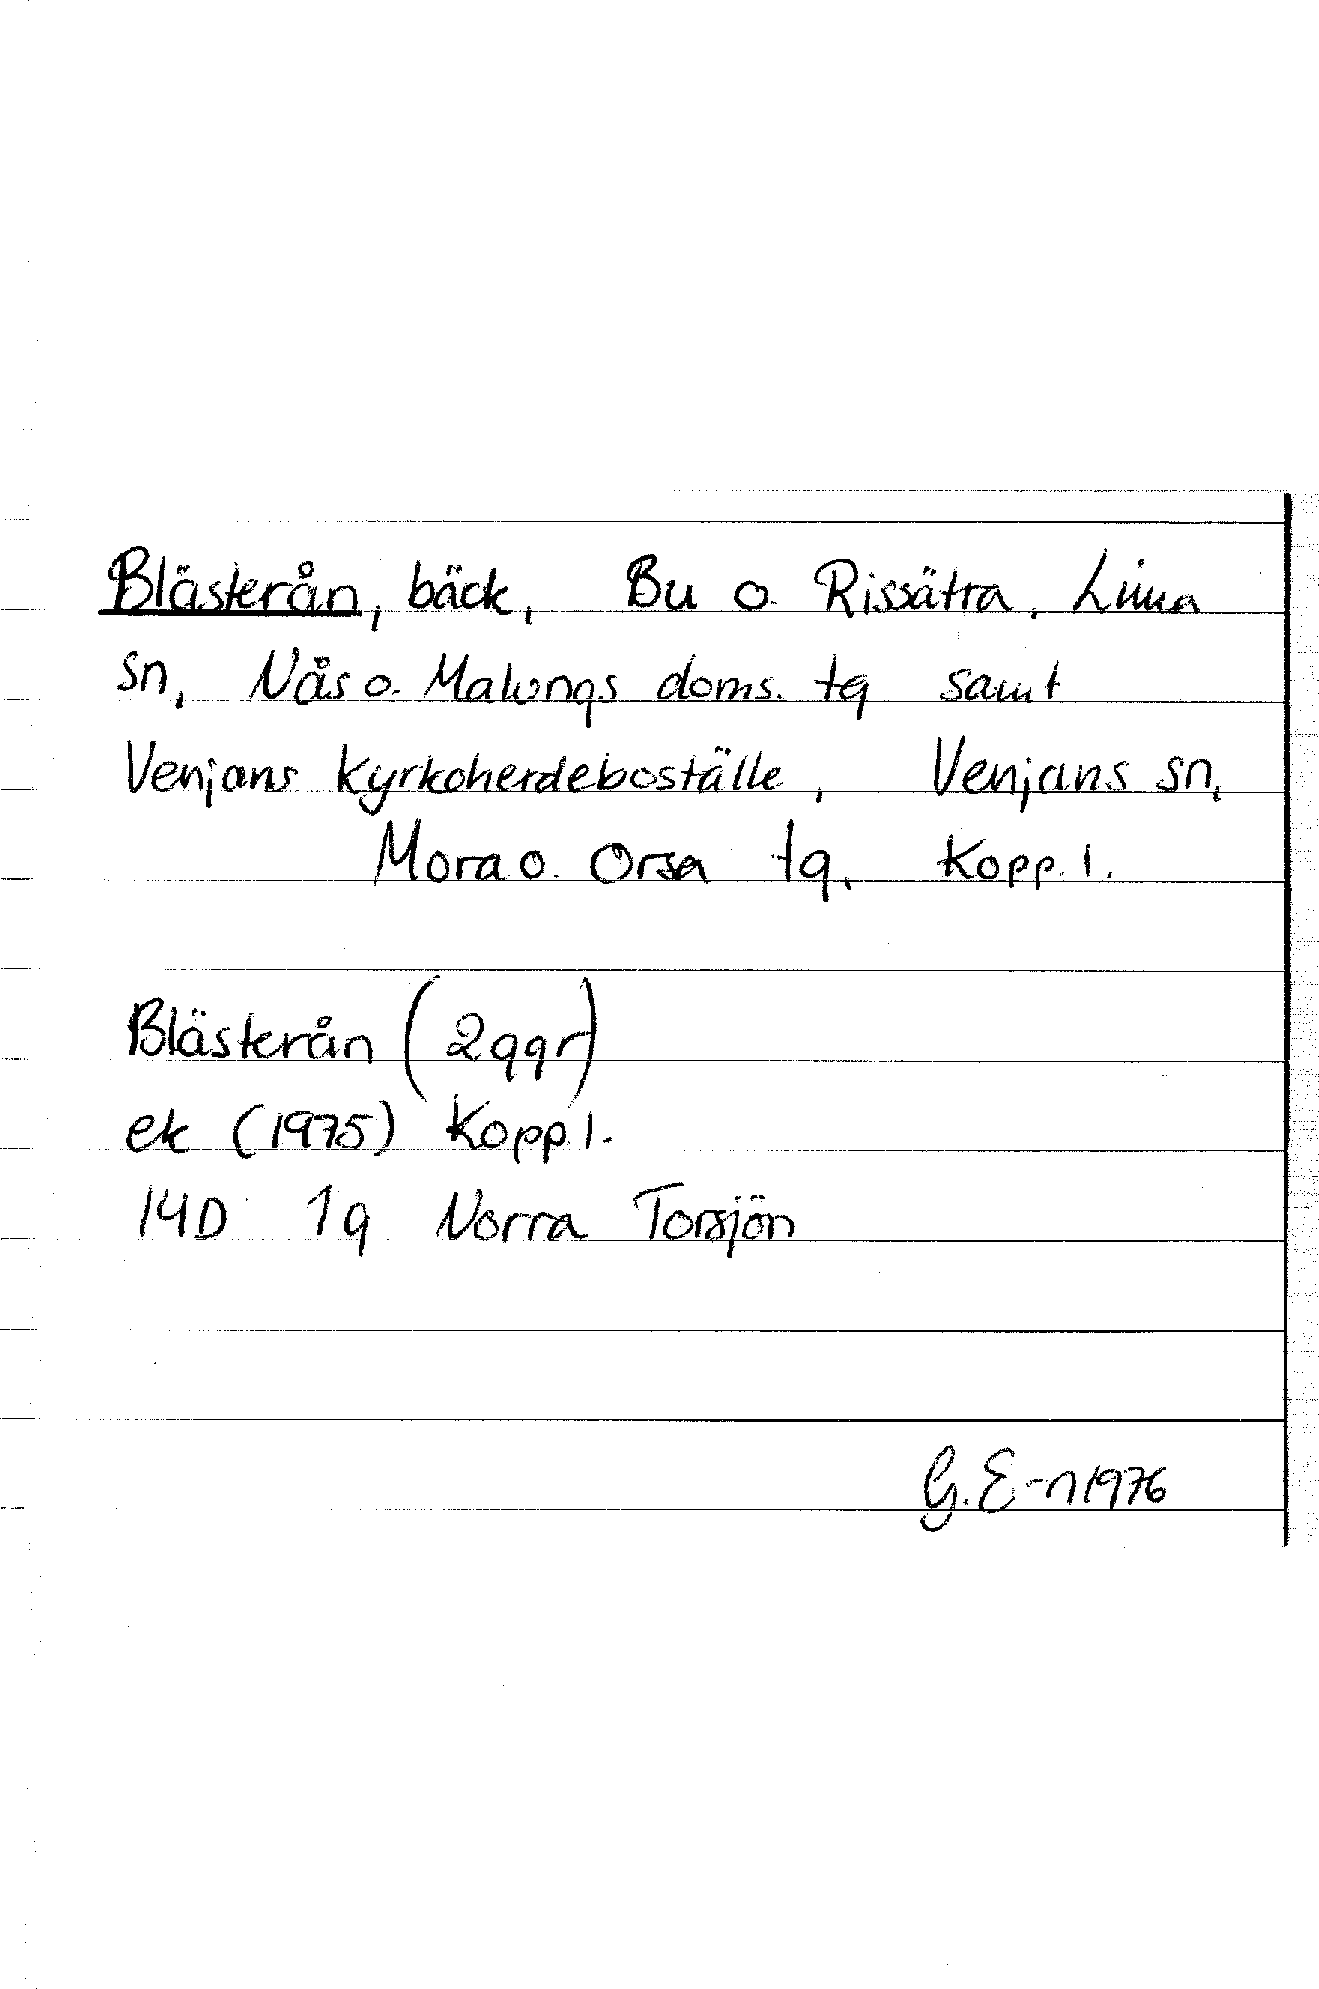 Blästerån, bäck, Bu o. Rissätra, Lima
sn, Nås o. Malungs doms. tg samt
Venjans kyrkoherdeboställe, Venjans sn,
Mora o. Orsa tg, Kopp. l.
Blästerån (2 ggr)
ek (1975) Kopp. l.
14D 1g Norra Torsjön
G. E-n 1976